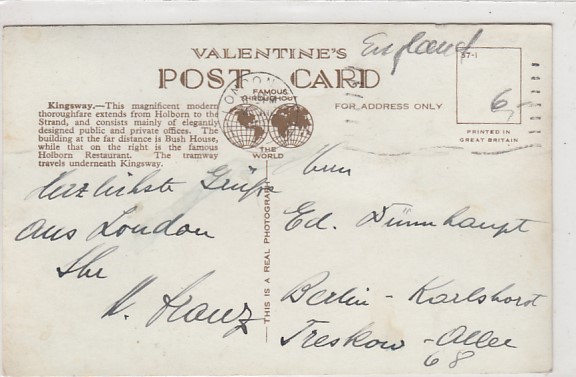 England
VALENTINE'S
POST CARD
57-1
6,-
LONDON
FAMOUS
THROUGHOUT
THE
WORLD
FOR ADDRESS ONLY
PRINTED IN
GREAT BRITAIN
Kingsway.—This magnificent modern
thoroughfare extends from Holborn to the
Strand, and consists mainly of elegantly
designed public and private offices. The
building at the far distance is Bush House,
while that on the right is the famous
Holborn Restaurant. The tramway
travels underneath Kingsway.
THIS IS A REAL PHOTOGRAPH
Herzlichste Grüße
aus London
Ihr
Franz
Herrn
Ed. Dünnhaupt
Berlin - Karlshorst
Treskow - Allee
68